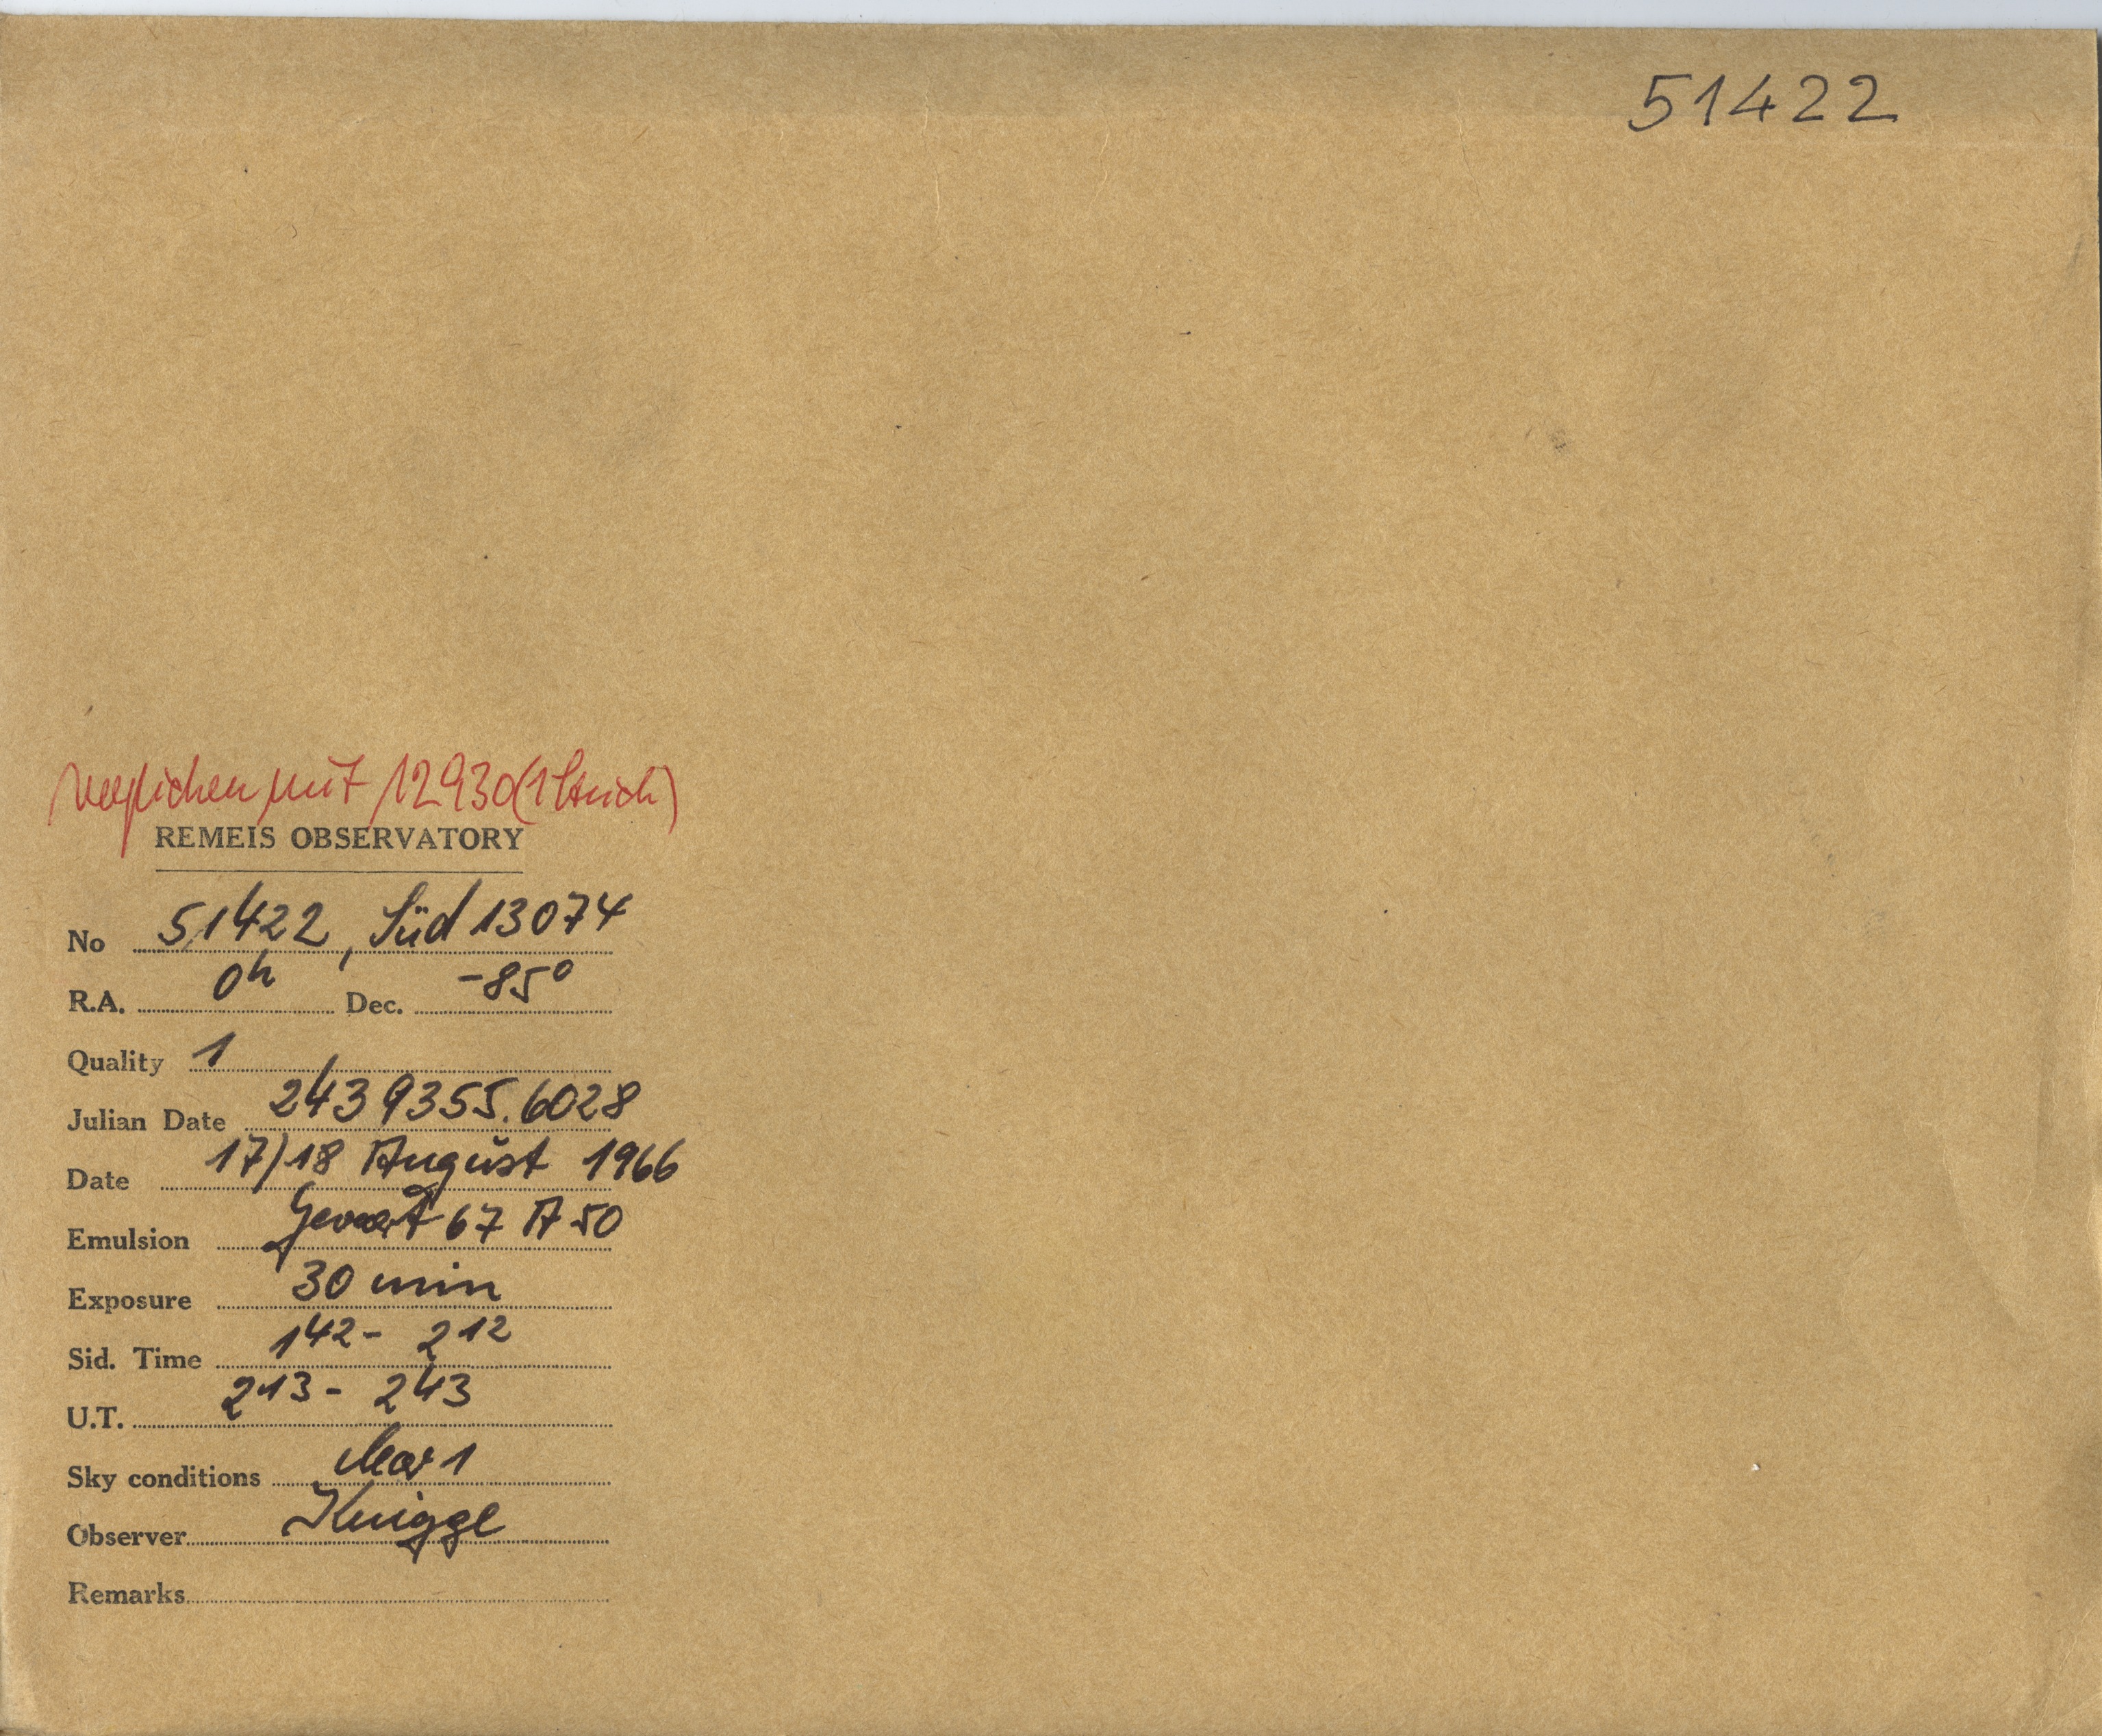 51422
verglichen mit 12930 (1 Strich)
REMEIS OBSERVATORY
No 51422, Süd 13074
R.A. 0h Dec. -85°
Quality 1
Julian Date 2439355.6028
Date 17/18 August 1966
Emulsion Gevaert 67 A 50
Exposure 30 min
Sid. Time 1 42 - 2 12
U.T. 2 13 - 2 43
Sky conditions clear 1
Observer Knigge
Remarks